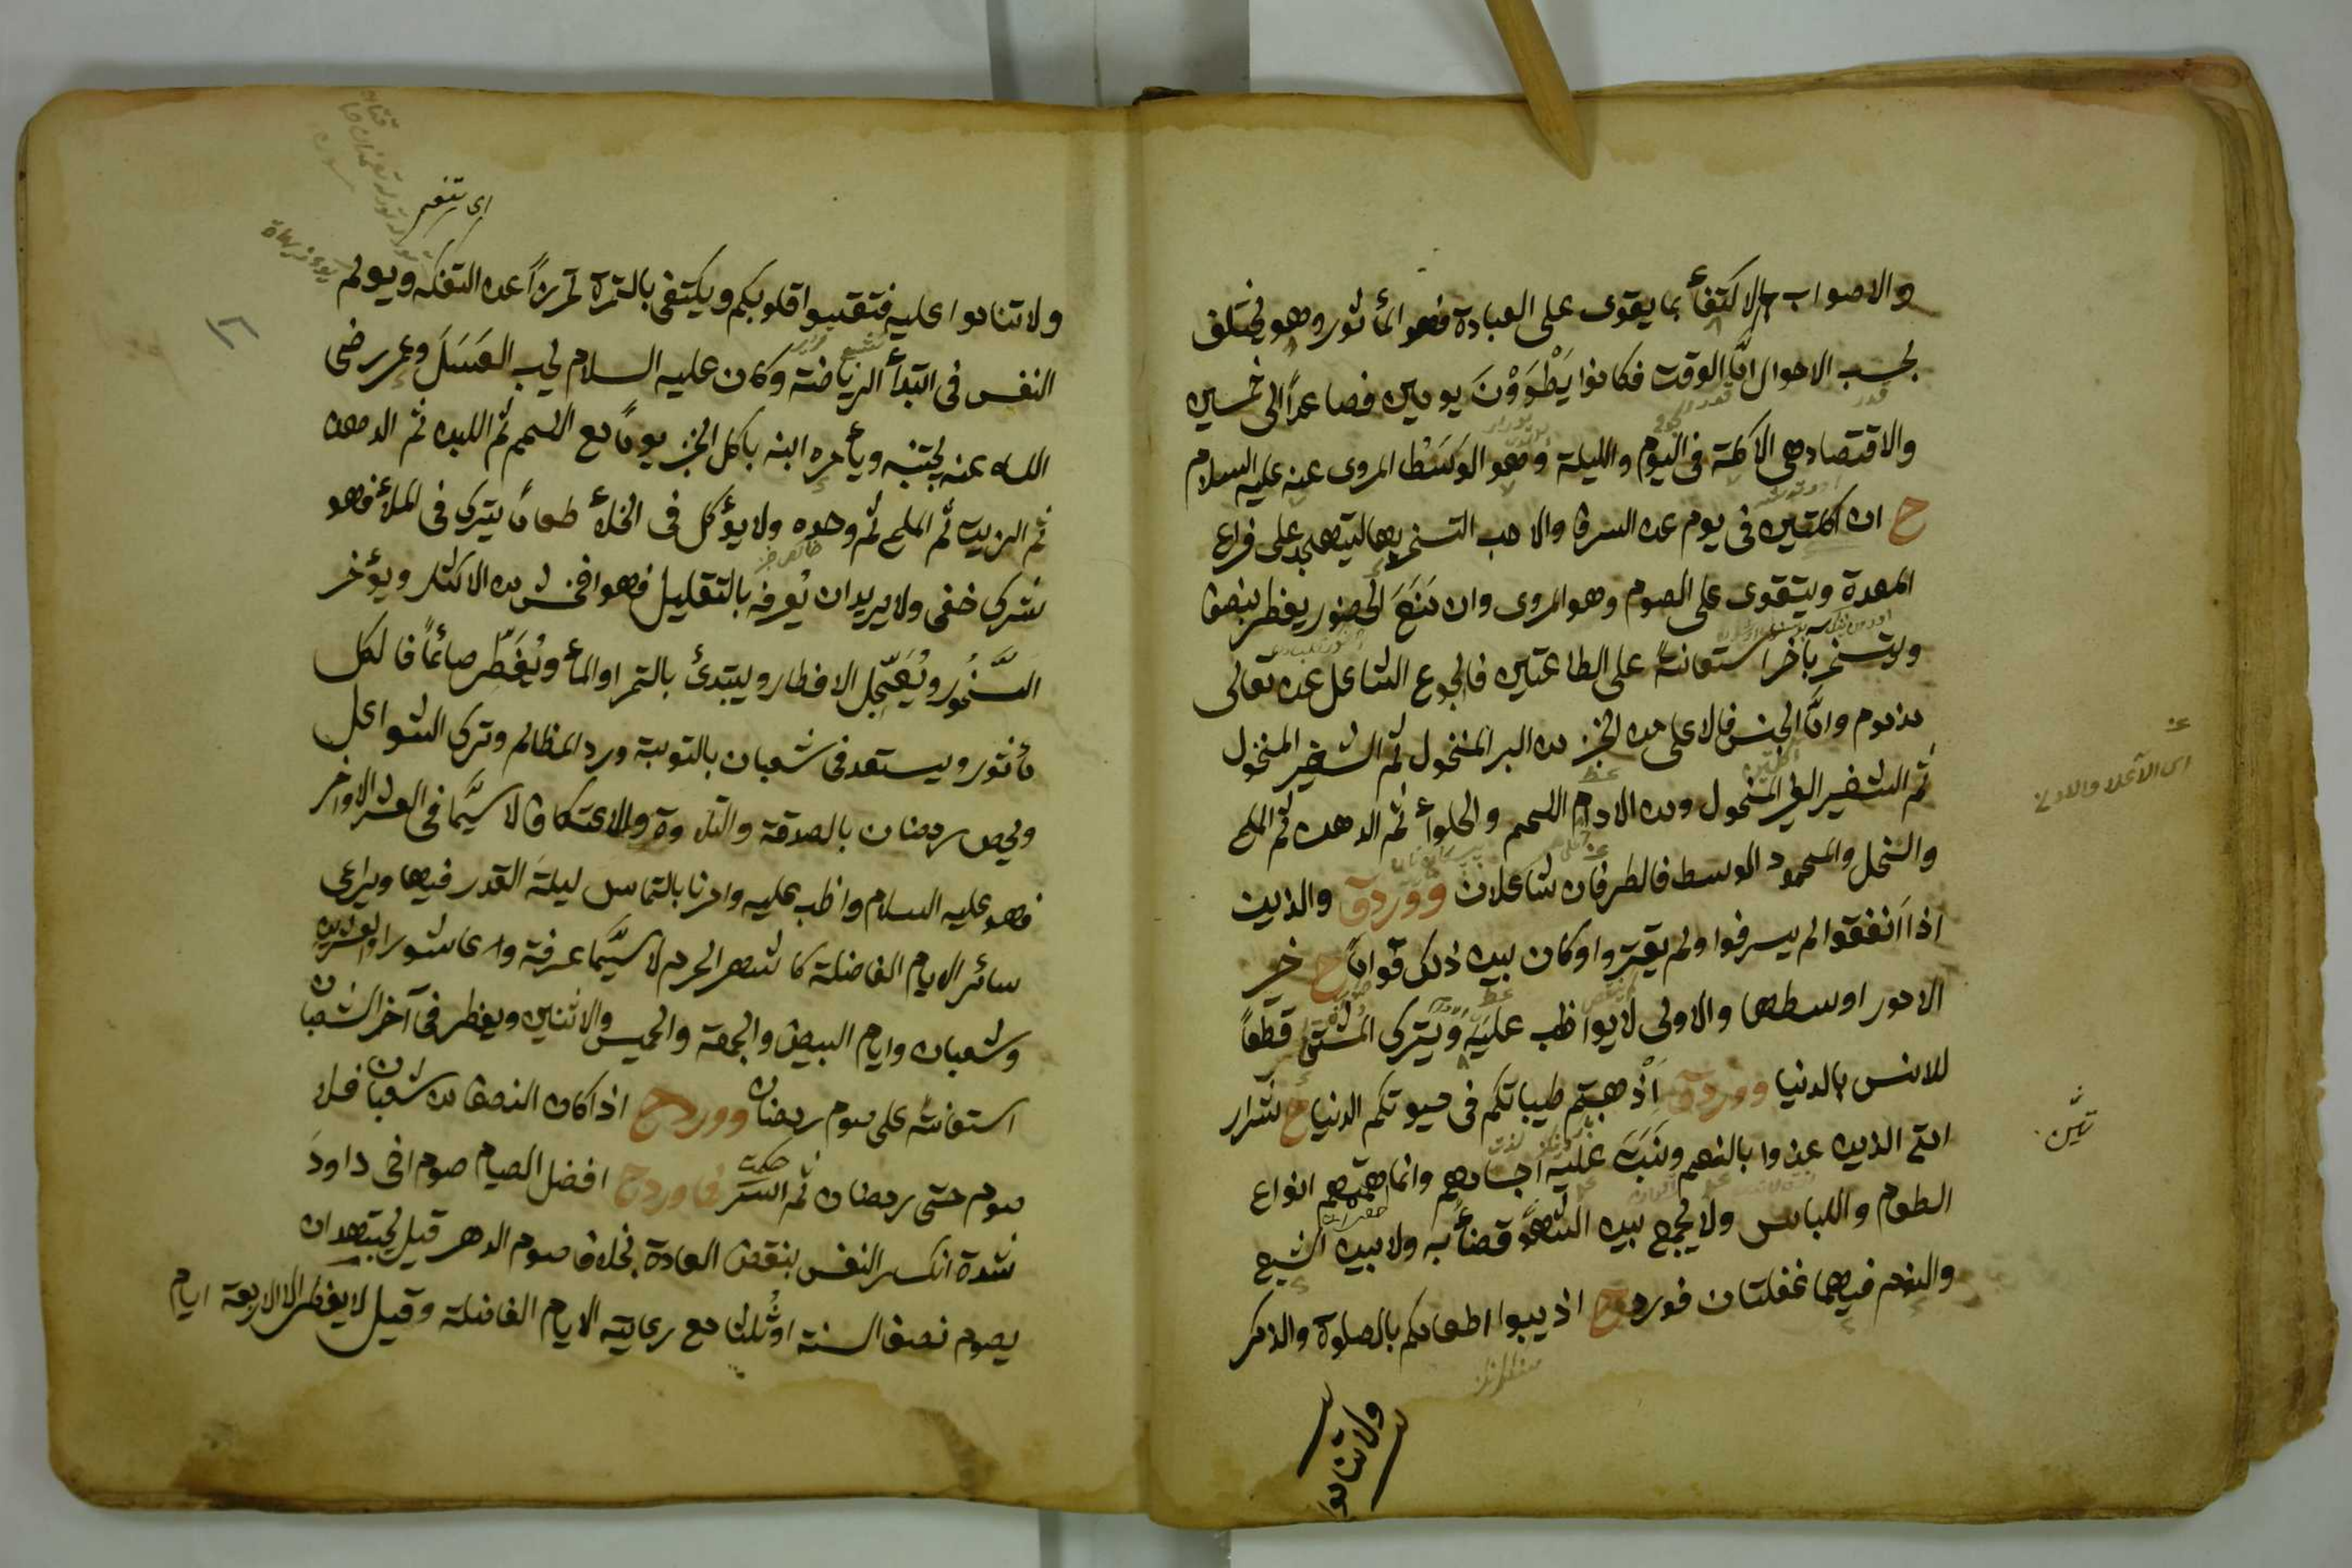 والاصواب الاكتفأ بما يقوى على العبادة فهو المأثور وهو يختلف
بحسب الاحوال امّا الوقت فكانوا يَطْوَوْنَ يومين فصاعداً الى خمسين
والاقتصاد هى الاكلة فى اليوم والليلة وهو الوَسَطْ المروى عنه عليه السلام
ح ان اكلتين فى يوم من السرف والاحب التسحر بها ليتهجد على فراغ
المعدة ويتقوى على الصوم وهو المروى وان مَنَعَ الحضور يفطر بنصف
ويتسحر بآخر استعانةً على الطاعتين فالجوع الشاغل عنه تعالى
مذموم وامّا الجنس فالاعلى من الخبز من البر المنخول ثم الشعير المنخول
ثم الشعير الغير المنخول ومن الادام اللحم والحلوأ ثم الدهن ثم الملح
والنخل والمحمود الوسط فالطرفان شاغلان وورد ق والذين
اذا انفقوا لم يسرفوا ولم يقتروا وكان بين ذلك قواماً ح خير
الامور اوسطها والاولى لا يواظب عليه ويترك المشتهى قطعاً
للانس بالدنيا وورد ق اَذْهبتم طيباتكم فى حيوتكم الدنيا ح شرار
امتى الذين غذوا بالنعيم ونَبَتَ عليه اجسادهم وانما همتهم انواع
الطعام واللباس ولا يجمع بين الشهوة قضأ به ولا بين الشبع
والنوم فيهما غفلتان فورد ح اذيبوا اطعامكم بالصلوة والذكر
ولا تناموا
اى الاعلا والادنى
اى تنعم
ولا تناموا عليه فتقسوا قلوبكم ويكتفى بالتمرة تمريناً عن التفكه ويولم
النفس فى ابتدأ الرياضة وكان عليه السلام يحب العَسَلَ وعمر رضى
الله عنه يجتنبه ويأمره ابنه بأكل الخبز يوماً مع اللحم ثم اللبن ثم الدهن
ثم الزيت ثم الملح ثم وحده ولا يؤكل فى الخلأ طعاماً يترك فى الملأ فهو
شرك خفى ولا يريد ان يُعرف بالتقليل فهو افحش من الاكثار ويؤخر
السَّحُور ويُعَجِّل الافطار ويبتدئ بالتمر او المأ ويُفَطِّر صائماً فالكل
مأثور ويستعد فى شعبان بالتوبة ورد المظالم وترك الشواغل
ويخص رمضان بالصدقة والتلاوة والاعتكاف لا سيَّما فى العشر الاواخر
فهو عليه السلام واظب عليه وامرنا بالتماس ليلة القدر فيها ويراعى
سائر الايام الفاضلة كاشهر الحرم لا سيَّما عرفة وعاشورا والعشرين
وشعبان وايام البيض والجمعة والخميس والاثنين ويفطر فى آخر الشعبان
استعانة على صوم رمضان وورد ح اذا كان النصف من شعبان فلا
صوم حتى رمضان ثم السر فاورد ح افضل الصيام صوم اخى داود
شدة انكسار النفس بنقض العادة بخلاف صوم الدهر قيل يجتهد ان
يصوم نصف السنة او ثُلثا مع رعاية الايام الفاضلة وقيل لا يفطر الا الاربعة ايام